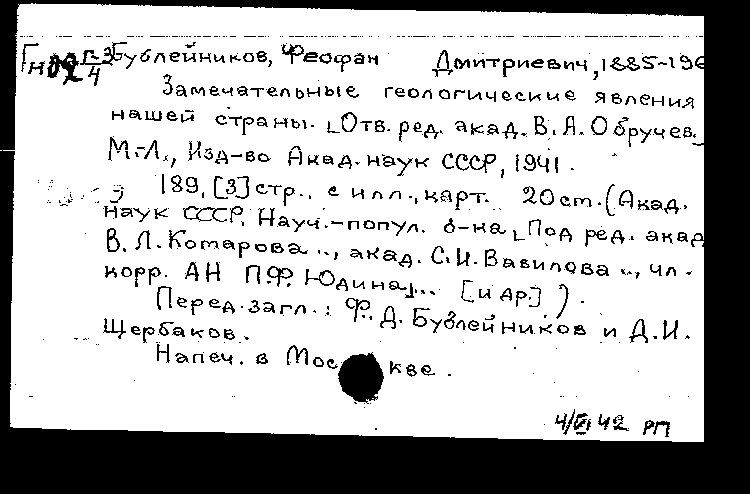 Бублейников, Феофан Дмитриевич, 1885-196
Замечательные геологические явления
нашей страны. [Отв. ред. акад. В. А. Обручев.
М.-Л., Изд-во Акад. наук СССР, 1941.
189, [3] стр., с илл., карт. 20 см. (Акад.
наук СССР. Науч.-попул. б-ка [Под ред. акад
В. Л. Комарова.., акад. С. И. Вавилова.., чл.-
корр. АН П. Ф. Юдина]... [и др.] ).
Перед загл.: Ф. Д. Бублейников и Д. И.
Щербаков.
Напеч. в Москве.
4/VI 42 РП